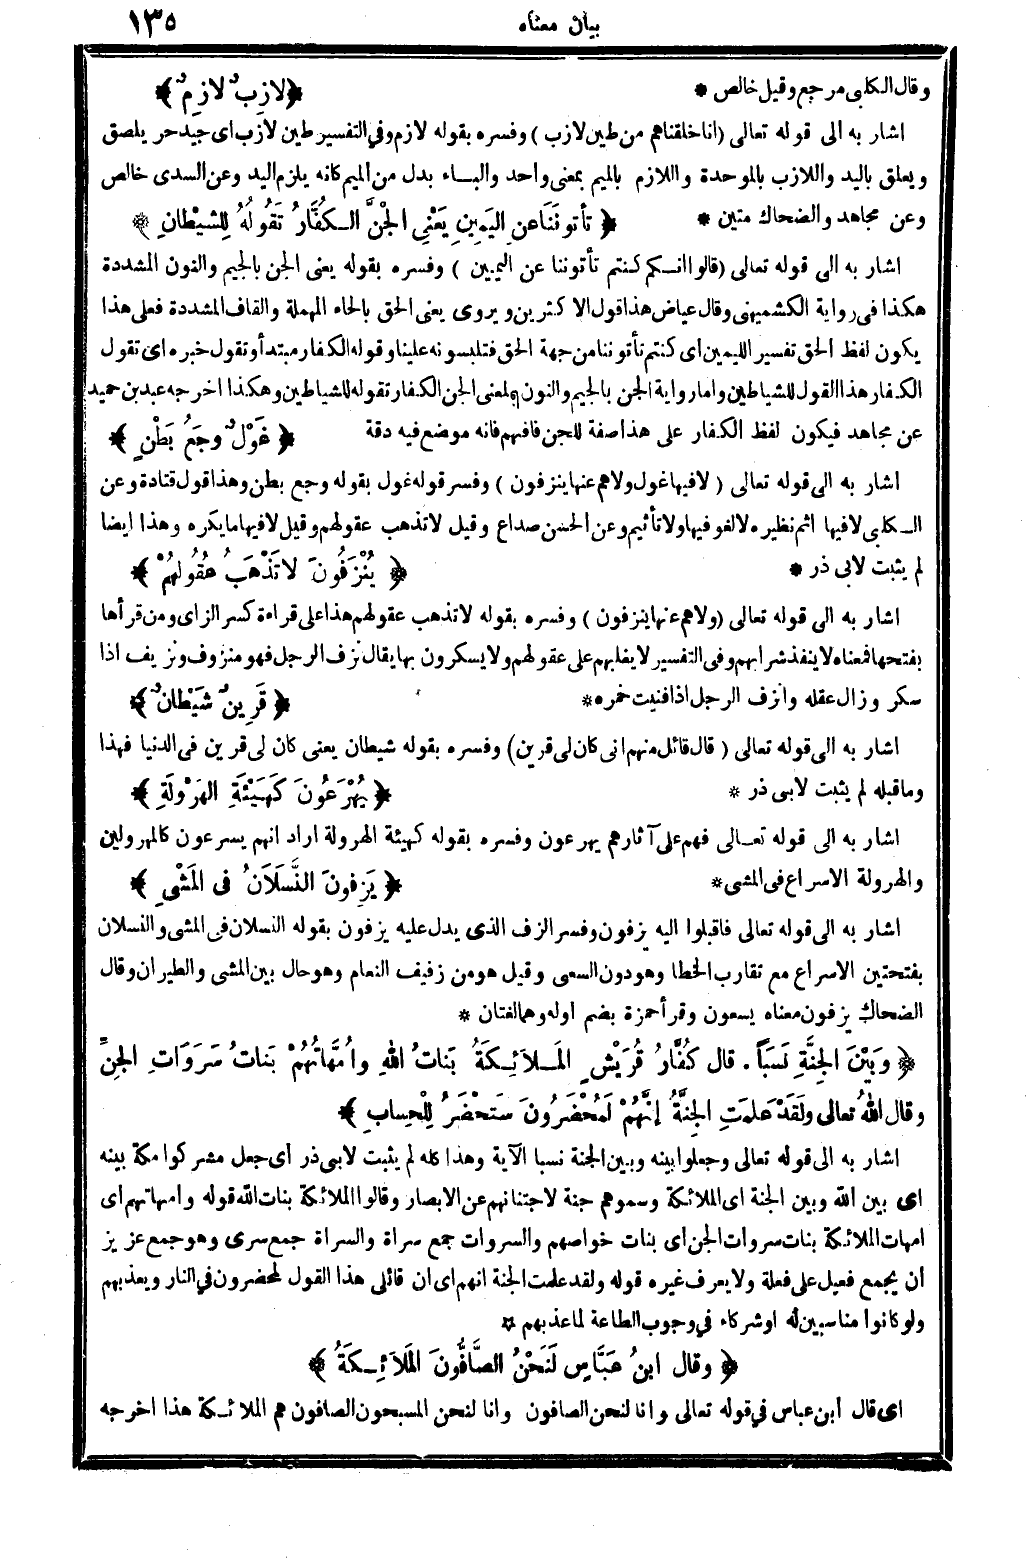 بيان معناه ١٣٥
وقال الكلبى مرجع وقيل خالص * ﴿لازِبٌ لازِمٌ﴾
اشار به الى قوله تعالى (انا خلقناهم من طين لازب) وفسره بقوله لازم وفى التفسير طين لازب اى جيد حر يلصق
ويعلق باليد واللازب بالموحدة واللازم بالميم بمعنى واحد والباء بدل من الميم كانه يلزم اليد وعن السدى خالص
وعن مجاهد والضحاك متين * ﴿تأتونَنَا عنِ اليَمِينِ يَعْنِى الجْنَّ الكُفَّارُ تَقُولُهُ لِلشيْطانِ﴾
اشار به الى قوله تعالى (قالوا انكم كنتم تأتوننا عن اليمين) وفسره بقوله يعنى الجن بالجيم والنون المشددة
هكذا فى رواية الكشميهنى وقال عياض هذا قول الاكثرين ويروى يعنى الحق بالحاء المهملة والقاف المشددة فعلى هذا
يكون لفظ الحق تفسير اليمين اى كنتم تأتوننا من جهة الحق فتلبسونه علينا وقوله الكفار مبتدأ وتقول خبره اى تقول
الكفار هذا القول للشياطين واما رواية الجن بالجيم والنون فالمعنى الجن الكفار تقوله للشياطين وهكذا اخرجه عبد بن حميد
عن مجاهد فيكون لفظ الكفار على هذا صفة للجن فافهم فانه موضع فيه دقة ﴿غَوْلٌ وجَعُ بَطْنٍ﴾
اشار به الى قوله تعالى (لا فيها غول ولا هم عنها ينزفون) وفسر قوله غول بقوله وجع بطن وهذا قول قتادة وعن
الكلبى لا فيها اثم نظيره لا لغو فيها ولا تأثيم وعن الحسن صداع وقيل لا تذهب عقولهم وقيل لا فيها ما يكره وهذا ايضا
لم يثبت لابى ذر * ﴿يُنْزَفُونَ لا تَذْهَبُ عُقُولُهُمْ﴾
اشار به الى قوله تعالى (ولا هم عنها ينزفون) وفسره بقوله لا تذهب عقولهم هذا على قراءة كسر الزاى ومن قرأها
بفتحها فمعناه لا ينفذ شرابهم وفى التفسير لا يغلبهم على عقولهم ولا يسكرون بها يقال نزف الرجل فهو منزوف ونزيف اذا
سكر وزال عقله وانزف الرجل اذا فنيت خمره * ﴿قَرِينٌ شَيْطانٌ﴾
اشار به الى قوله تعالى (قال قائل منهم انى كان لى قرين) وفسره بقوله شيطان يعنى كان لى قرين فى الدنيا فهذا
وما قبله لم يثبت لابى ذر * ﴿يُهْرَعُونَ كَهَيْئَةِ الهَرْوَلَةِ﴾
اشار به الى قوله تعالى فهم على آثارهم يهرعون وفسره بقوله كهيئة الهرولة اراد انهم يسرعون كالمهرولين
والهرولة الاسراع فى المشى * ﴿يَزِفونَ النَّسَلاَنُ فى المَشْىِ﴾
اشار به الى قوله تعالى فاقبلوا اليه يزفون وفسر الزف الذى يدل عليه يزفون بقوله النسلان فى المشى والنسلان
بفتحتين الاسراع مع تقارب الخطا وهو دون السعى وقيل هو من زفيف النعام وهو حال بين المشى والطيران وقال
الضحاك يزفون معناه يسعون وقرأ حمزة بضم اوله وهما لغتان *
﴿وَبَيْنَ الجِنَّةِ نَسَبَاً. قال كُفَّارُ قُرَيْشٍ المَلاَئِكَةُ بَنَاتُ اللهِ وأُمَّهَاتُهُمْ بَنَاتُ سَرَوَاتِ الجِنِّ
وقال اللهُ تعالى ولَقَدْ عَلمَتِ الجِنَّةُ إنَّهُمْ لَمُحْضَرُونَ سَتحْضَرُ لِلْحِسابِ﴾
اشار به الى قوله تعالى وجعلوا بينه وبين الجنة نسبا الآية وهذا كله لم يثبت لابى ذر أى جعل مشركوا مكة بينه
اى بين الله وبين الجنة اى الملائكة وسموهم جنة لاجتنانهم عن الابصار وقالوا الملائكة بنات الله قوله وامهاتهم اى
امهات الملائكة بنات سروات الجن اى بنات خواصهم والسروات جمع سراة والسراة جمع سرى وهو جمع عزيز
ان يجمع فعيل على فعلة ولا يعرف غيره قوله ولقد علمت الجنة انهم اى ان قائلى هذا القول لمحضرون فى النار ويعذبهم
ولو كانوا مناسبين له او شركاء فى وجوب الطاعة لما عذبهم *
﴿وقال ابنُ عَبَّاسٍ لَنَحْنُ الصَّافُّونَ المَلاَئِكَةُ﴾
اى قال ابن عباس فى قوله تعالى وانا لنحن الصافون وانا لنحن المسبحون الصافون هم الملائكة هذا اخرجه